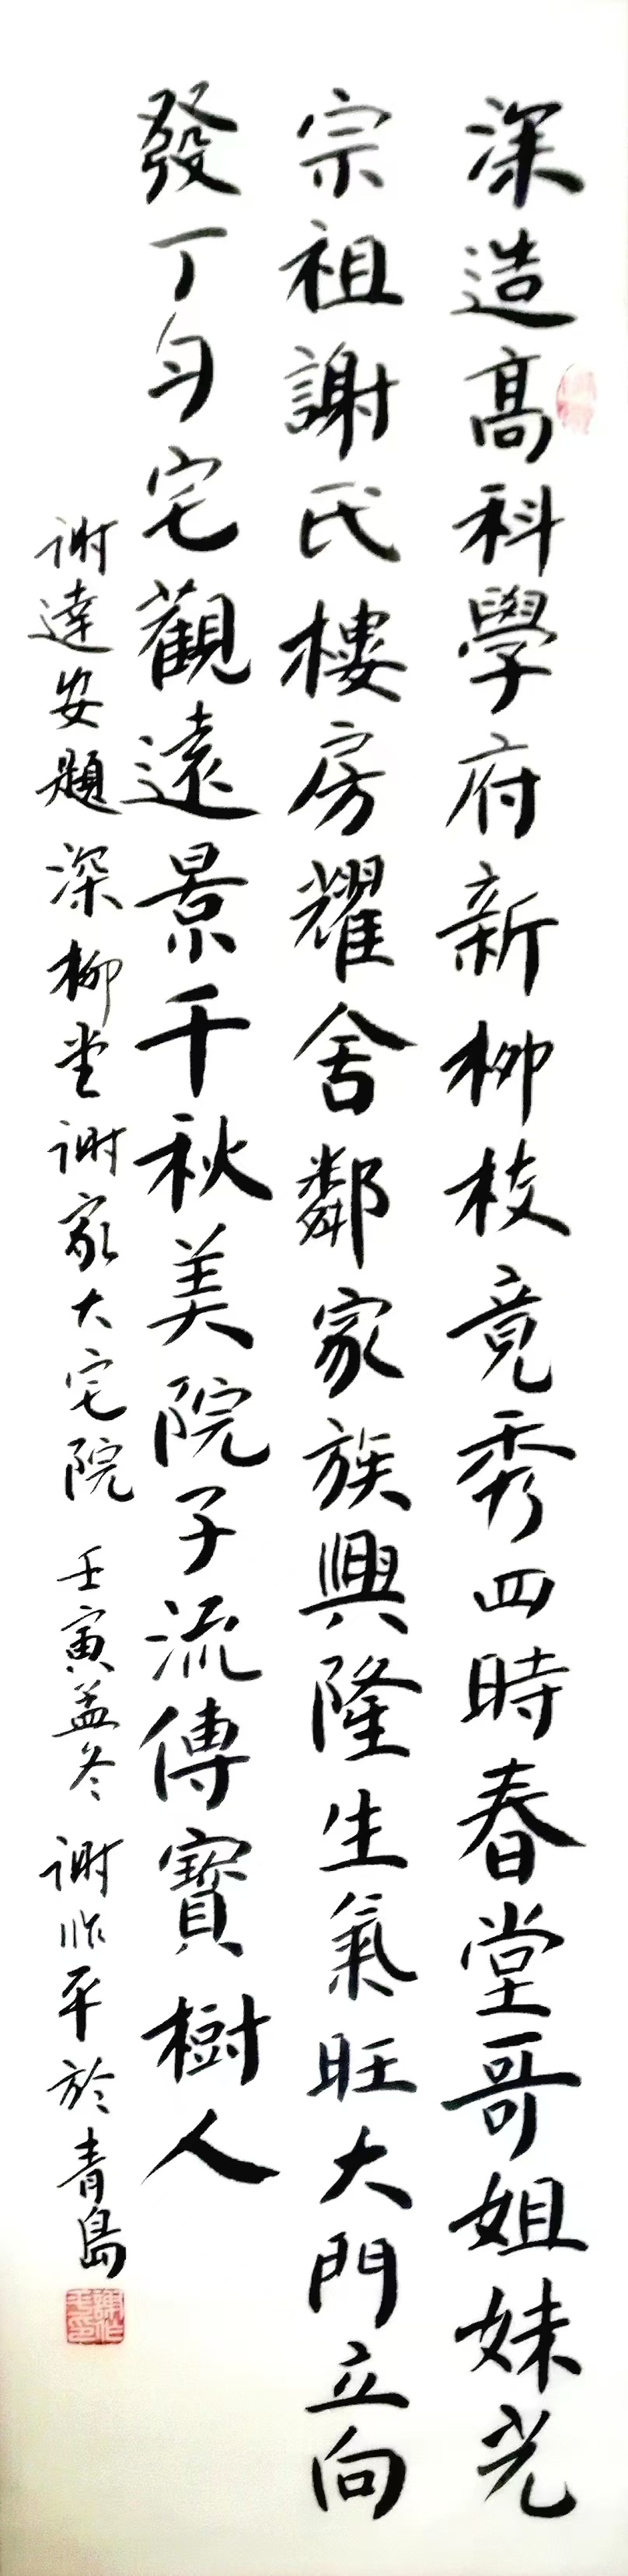 深造高科學府新柳枝竟秀四時春堂哥姐妹光
宗祖謝氏樓房耀舍鄰家族興隆生氣旺大門立向
發丁財宅觀遠景千秋美院子流傳寶樹人
谢達安題深柳堂谢家大宅院 壬寅孟冬 谢作平於青島